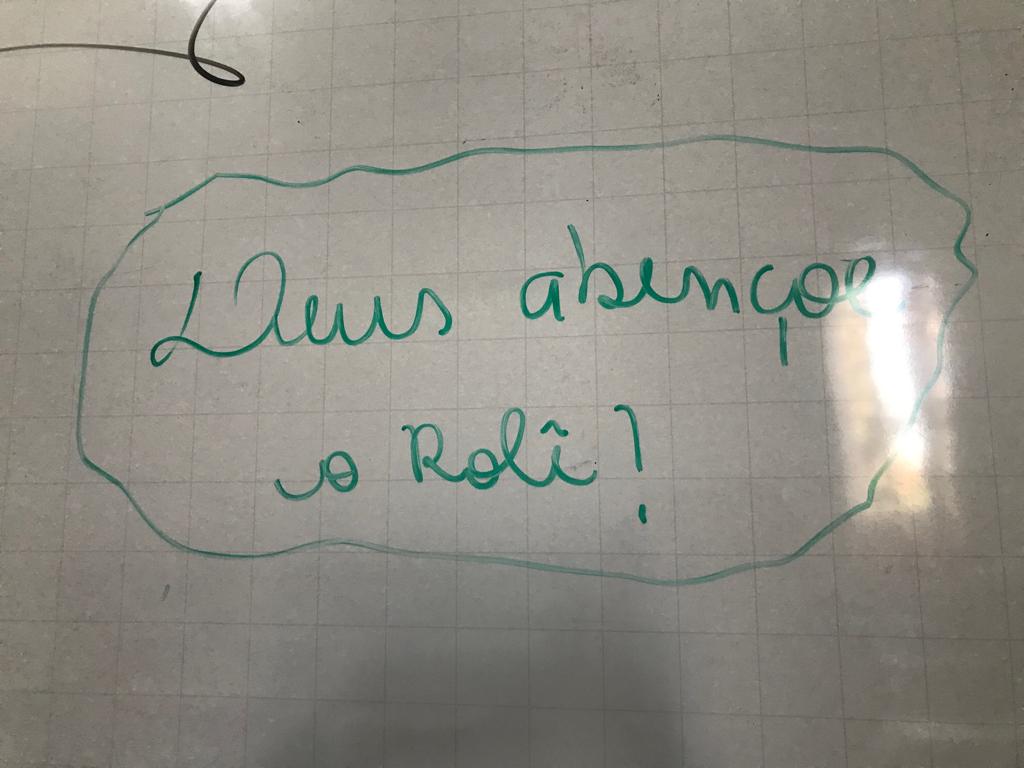 Deus abençoe
o Rolî!